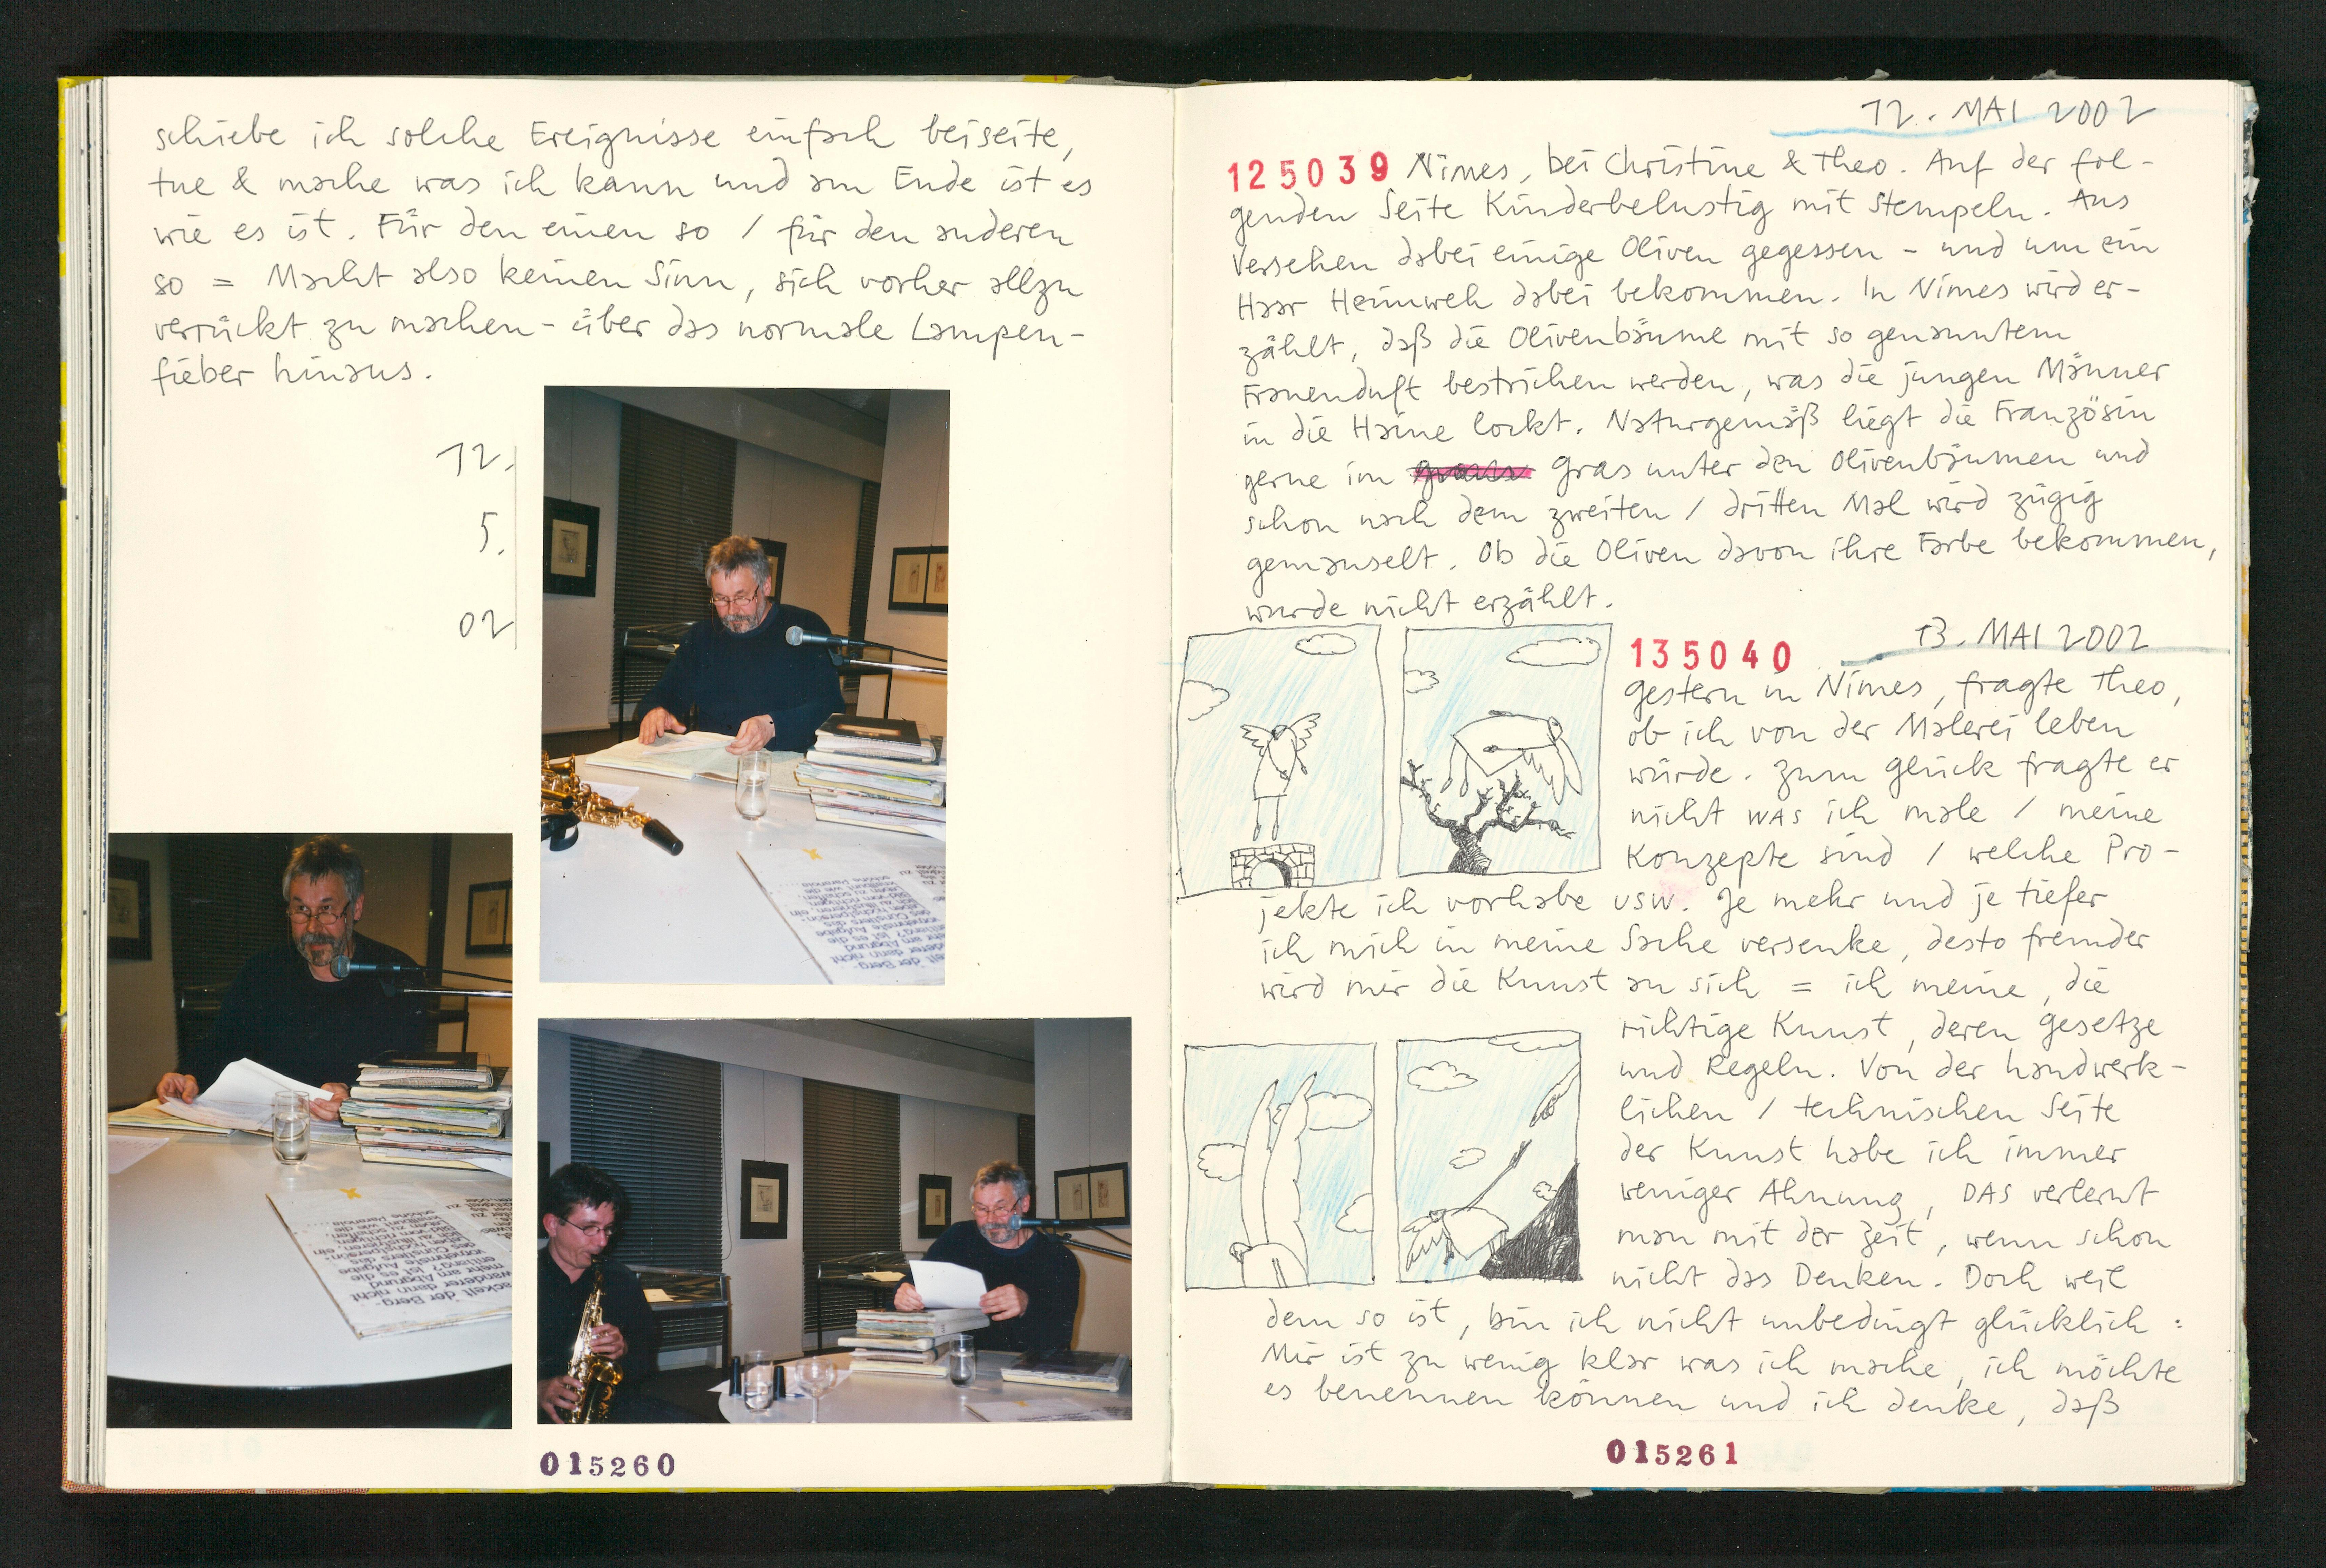 schiebe ich solche Ereignisse einfach beiseite,
tue & mache was ich kann und am Ende ist es
wie es ist. Für den einen so / für den anderen
so = Macht also keinen Sinn, sich vorher allzu
verrückt zu machen - über das normale Lampen-
fieber hinaus.
12.
5.
02
015260
12. MAI 2002
125039 Nimes, bei Christine & Theo. Auf der fol-
genden Seite Kinderbelustig mit Stempeln. Aus
Versehen dabei einige Oliven gegessen - und um ein
Haar Heimweh dabei bekommen. In Nimes wird er-
zählt, daß die Olivenbäume mit so genanntem
Frauenduft bestrichen werden, was die jungen Männer
in die Haine lockt. Naturgemäß liegt die Französin
gerne im Gras unter den Olivenbäumen und
schon nach dem zweiten / dritten Mal wird zügig
gemauselt. Ob die Oliven davon ihre Farbe bekommen,
wurde nicht erzählt.
13. MAI 2002
135040
Gestern in Nimes, fragte Theo,
ob ich von der Malerei leben
würde. Zum Glück fragte er
nicht WAS ich male / meine
Konzepte sind / welche Pro-
jekte ich vorhabe usw. Je mehr und je tiefer
ich mich in meine Sache versenke, desto fremder
wird mir die Kunst an sich = ich meine, die
richtige Kunst, deren Gesetze
und Regeln. Von der handwerk-
lichen / technischen Seite
der Kunst habe ich immer
weniger Ahnung, DAS verlernt
man mit der Zeit, wenn schon
nicht das Denken. Doch weil
dem so ist, bin ich nicht unbedingt glücklich:
Mir ist zu wenig klar was ich mache, ich möchte
es benennen können und ich denke, daß
015261